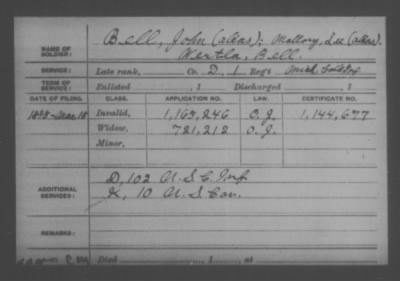 NAME OF SOLDIER: Bell, John (alias); Mallory, Lee (alias).
Bell.
SERVICE: Late rank, Co. D, 1 Reg't Mich. Col'd Inf.
TERM OF SERVICE: Enlisted , 1 Discharged , 1
DATE OF FILING. CLASS. APPLICATION NO. LAW. CERTIFICATE NO.
Invalid, 1,144,677
Widow, 721,212
Minor,
ADDITIONAL SERVICES: D, 102 U.S.C. Inf.
K, 10 U.S. Cav.
REMARKS:
Died , 1 , at